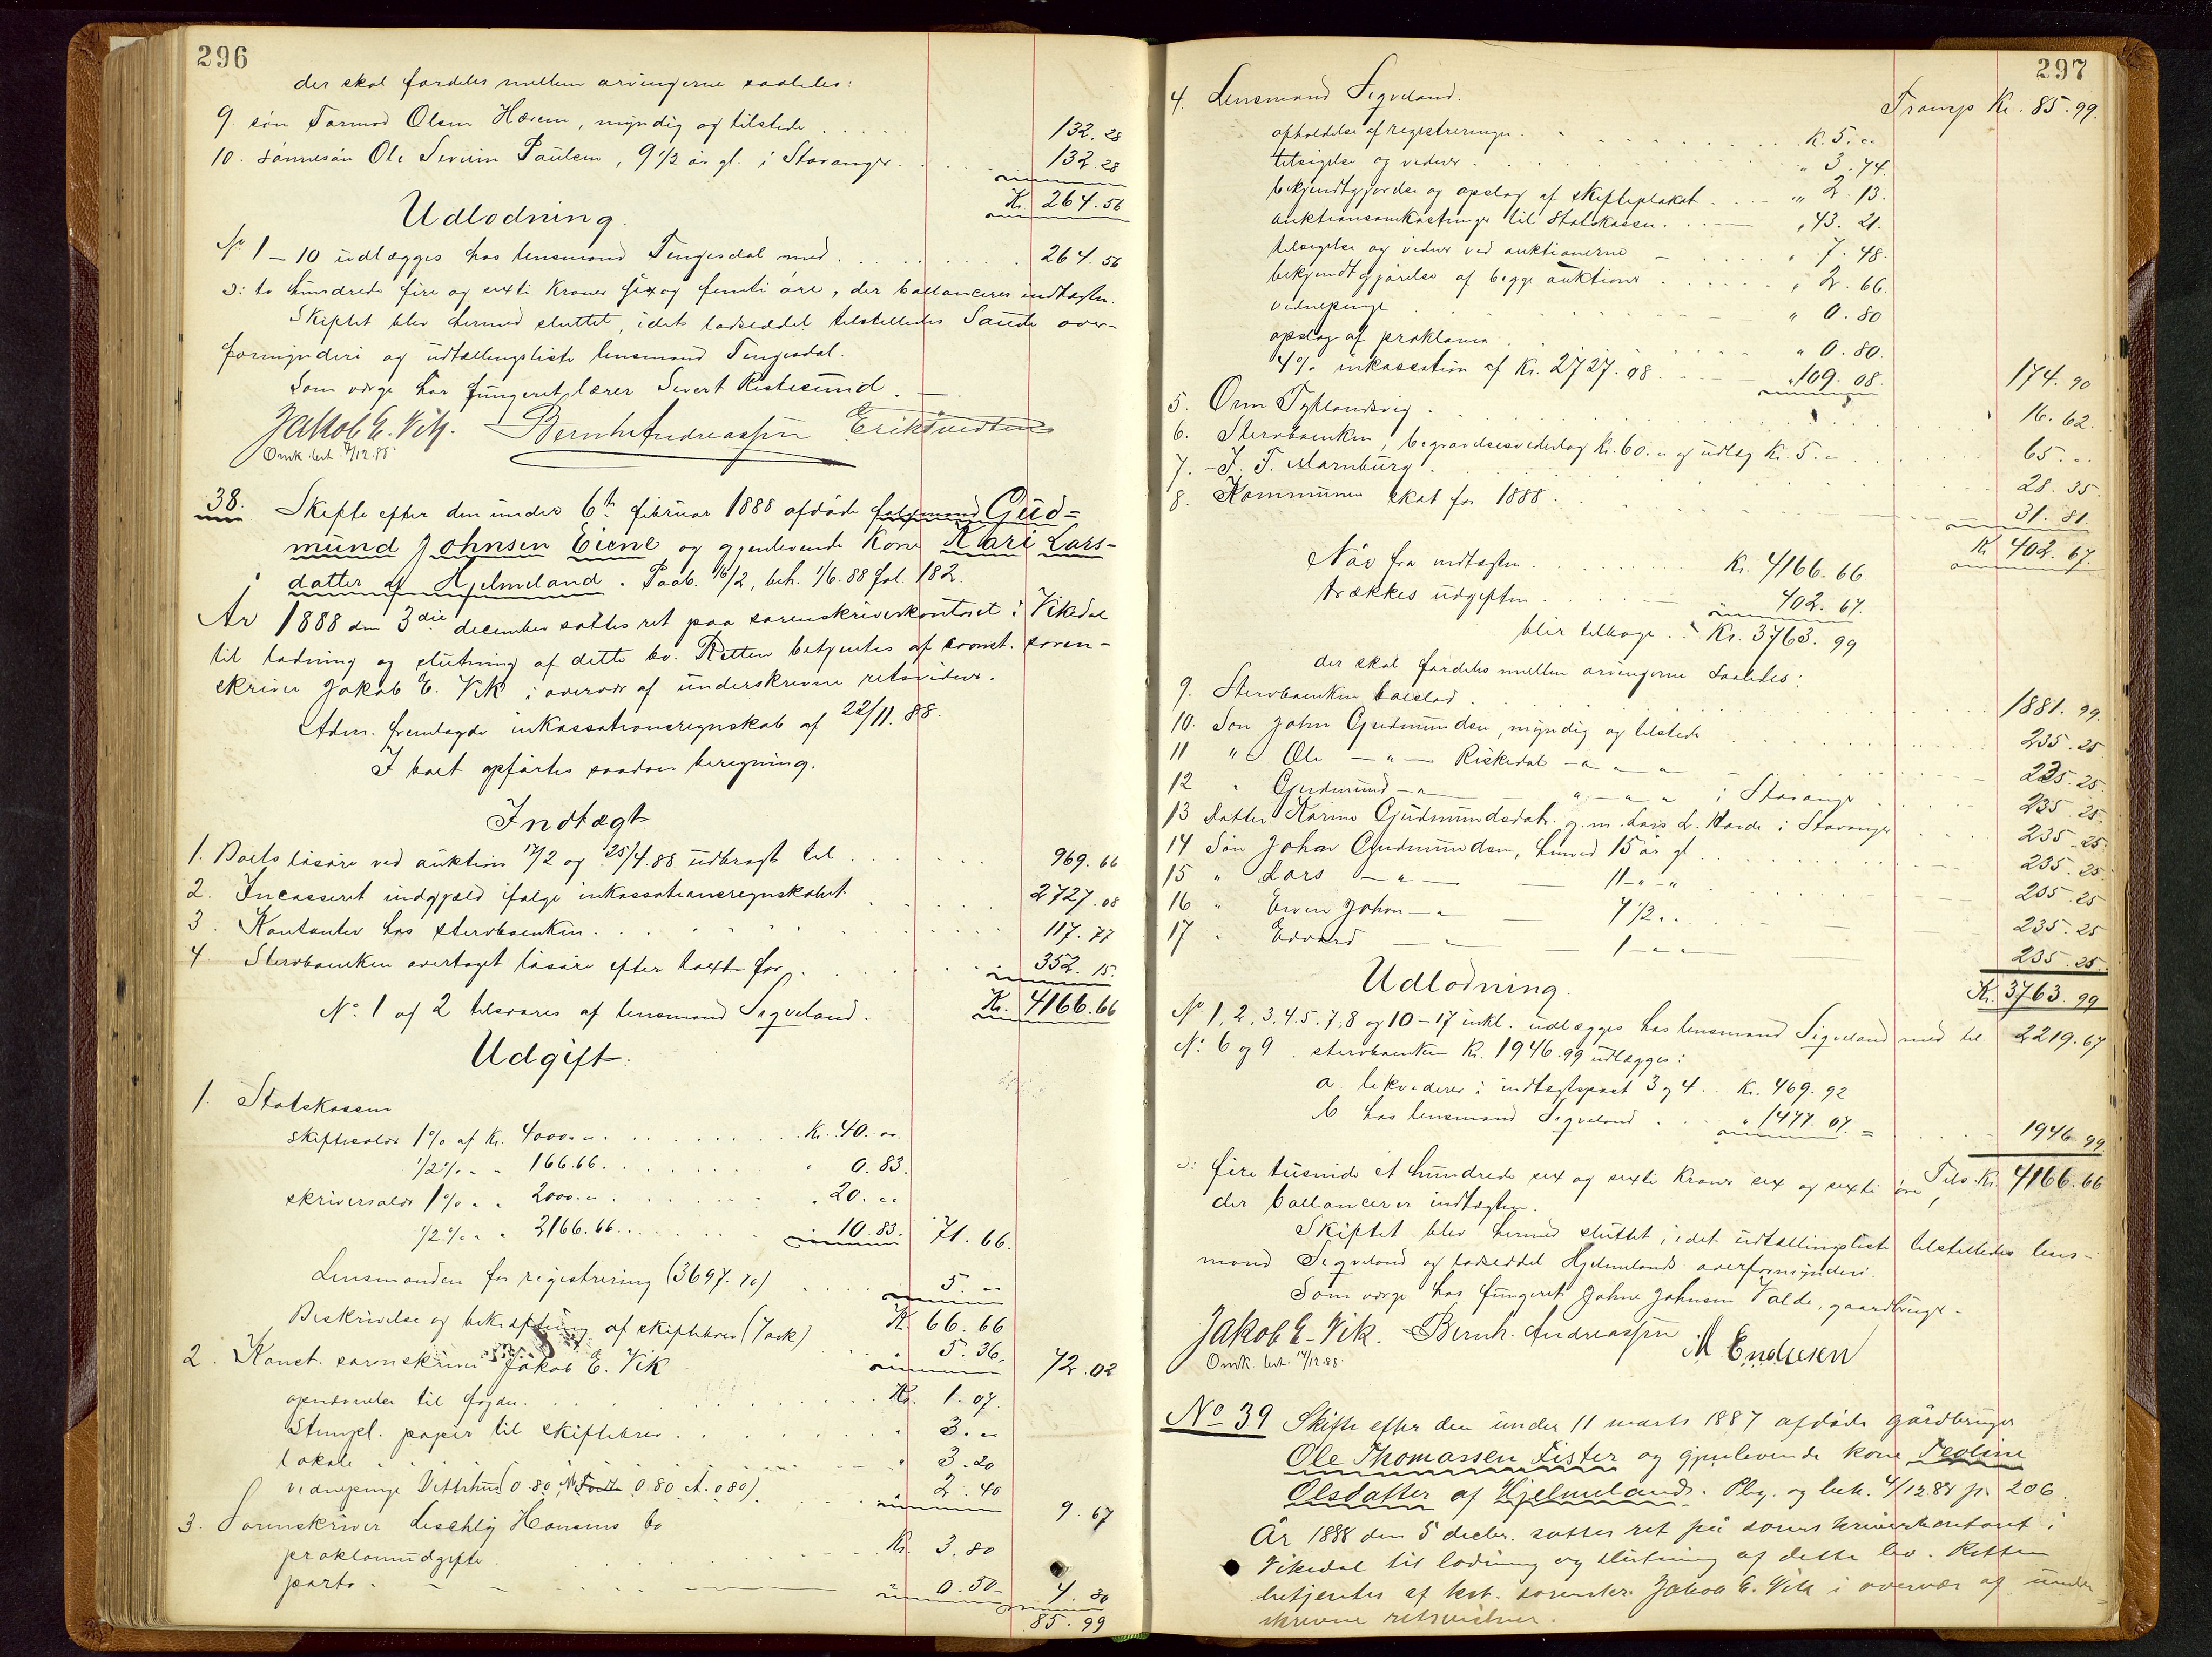 296
der skal fordeles mellem arvingerne saaledes:
9 søn Tormod Olsen Hæreim, myndig og tilstede 132.28
10. sønnesøn Ole Severin Paulsen, 9 1/2 år gl. i Stavanger. 132.28
Kr. 264.56
Udlodning.
No 1 – 10 udlægges hos lensmand Tengesdal med 264.56
ɔ: to hundrede fire og sexti Kroner sex og femti øre, der ballancerer indtægten.
Skiftet blev hermed sluttet, idet lodseddel tilstilledes Saude over-
formynderi og udtællingsliste lensmand Tengesdal.
Som værge har fungeret lærer Sivert Ristesund.
Jakob E. Vik. Bernh Andreassen
Omk. bet. /12.88
38. Skifte efter den under 6te februar 1888 afdøde Gud-
mund Johnsen Eiene og gjenlevende Kone Kari Lars-
datter af Hjelmeland. Paab. 16/2, beh. 1/6.88 fol. 182.
År 1888 den 3die december sattes ret paa sorenskriverkontoret i Vikedal
til lodning og slutning af dette bo. Retten betjentes af const. soren-
skriver Jakob E. Vik i overvær af underskrevne retsvidner.
Adm. fremlagde inkassationsregnskab af 22/11.88.
I boet opførtes saadan beregning.
Indtægt
1. Boets løsøre ved auktion 17/2 og 25/4.88 udbragt til 969.66
2. Incasseret indgjæld ifølge inkassationsregnskabet 2727.08
3. Kontanter hos stervboenken 117.77
4 Stervboenken overtaget løsøre efter taxt for 352.15.
No. 1 og 2 tilsvares af lensmand Sigveland. Kr. 4166.66
Udgift:
1. Statskassen
skiftesalær 1% af Kr. 4000.– Kr. 40.–
1/2% – – 166.66. " 0.83.
skriversalær 1% – – 2000.– " 20.–
1/2% – – 2166.66 10.83. 71.66.
Lensmanden for registrering (3697.70) 5.–
Kr. 66.66
Beskrivelse og bekræftning af skiftebrev (7ark) 5.36. 72.02
2. Konst. sorenskriver Jakob E. Vik
til fogden. Kr. 1.07.
Stempl. papir til skiftebrev " 3.–
lokale " 3.20
vidnepenge (0.80 0.80 0.80) 2.40 9.67
3. Sorenskriver Hansens bo
proklamudgifte. Kr. 3.80
porto. " 0.50 4.30
85.99
297
Transp Kr. 85.99.
4. Lensmand Sigveland.
afholdelse af registreringer. K. 5.–
tilsigelse og vidner. " 3.74.
bekjendtgjørelse og opslag af skifteplakat " 2.13.
auktionsomkostninger til Statskassen. " 43.21.
tilsigelse og vidner ved auktionerne " 7.48.
bekjendtgjørelse af begge auktioner " 2.66.
vidnepenge " 0.80
opslag af proklama " 0.80.
4% inkassation af Kr. 2727.08. " 109.08. 174.90
5. Orm Tytlandsvig 16.62.
6. Stervboenken, begravelsesvederlag Kr. 60.– og udlæg Kr. 5.– 65.–
7. J. F. Marnburg 28.35.
8. Kommunen skat for 1888. 31.81.
Kr 402.67.
Når fra indtægten Kr. 4166.66
trækkes udgiften 402.67.
blir tilbage Kr. 3763.99
der skal fordeles mellem arvingerne saaledes:
9. Stervboenken boeslod 1881.99.
10. Søn John Gudmundsen, myndig og tilstede 235.25
11 " Ole – " – Riskedal – " – 235.25.
12 " Gudmund – " – " – i Stavanger 235.25.
13 datter Karine Gudmundsdatr. g. m. Lars L. i Stavanger 235.25.
14 Søn Johan Gudmundsen, henved 15 år gl. 235.25.
15 " Lars – " – 11 – " – 235.25
16 " Johan – " 7 1/2 " " 235.25
17 " Edvard – " – 1 – " – 235.25.
Kr. 3763.99
Udlodning.
No 1, 2, 3, 4. 5. 7, 8 og 10–17 inkl. udlægges hos lensmand Sigveland med til 2219.67
No. 6 og 9. stervboenken Kr. 1946.99 udlægges:
a likviderer i indtægtspost 3 og 4 Kr. 469.92
b hos lensmand Sigveland " 1477.07. = 1946.99.
ɔ: fire tusinde et hundrede sex og sexti Kroner sex og sexti øre, Tils. Kr. 4166.66
der ballancerer indtægten.
Skiftet blev hermed sluttet, idet udtællingsliste tilstilledes lens-
mand Sigveland og lodseddel Hjelmelands overformynderi.
Som værge har fungeret Johne Johnsen Valde, gaardbruger.
Jakob E. Vik. Bernh. Andreassen M Endresen
Omk. bet. 14/12.88.
No 39 Skifte efter den under 11 marts 1887 afdøde gårdbruger
Ole Thomassen Fister og gjenlevende kone Teoline
Olsdatter af Hjelmeland. Pbg. og beh. 4/12.88 p. 206.
År 1888 den 5 decbr. sattes ret på sorenskriverkontoret i
Vikedal til lodning og slutning af dette bo. Retten
betjentes af kst. sorenskr. Jakob E. Vik i overvær af under-
skrevne retsvidner.